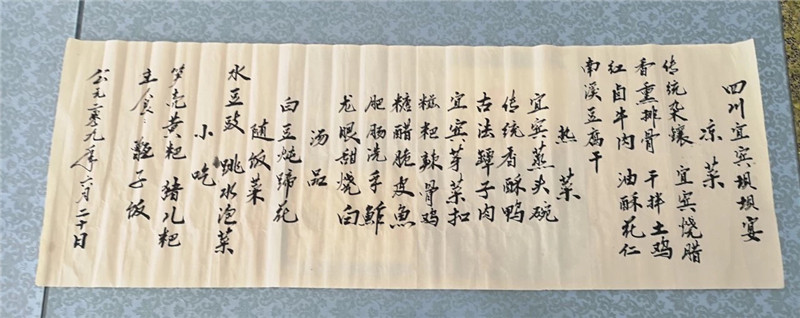 四川宜宾坝坝宴
凉菜
传统杂镶 宜宾烧腊
香熏排骨 干拌土鸡
红卤牛肉 油酥花仁
南溪豆腐干
热菜
宜宾蒸头碗
传统香酥鸭
古法罈子肉
宜宾芽菜扣
糍粑辣骨鸡
糖醋脆皮魚
肥肠洗手鲊
龙眼甜烧白
汤品
白豆炖蹄花
随饭菜
水豆豉 跳水泡菜
小吃
笋壳黄粑 猪儿粑
主食 甑子饭
公元二零一九年六月二十日